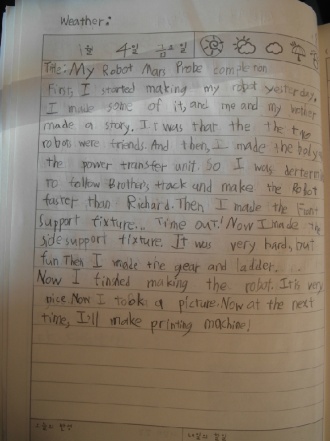 Weather:
1월 4일 금요일
Title: My Robot Mars Probe completion
First, I started making my robot yesterday.
I made some of it, and me and my brother
made a story. It was that the the two
robots were friends. And then, I made the body
the power transfer unit. So I was determ
to follow Brother's track and make the Robot
faster than Richard. Then I made the Front
support fixture... Time out! Now I made the
side support fixture. It was very hard, but
fun Then I made the gear and ladder...
Now I finished making the robot. It is very
nice. Now I took a picture. Now at the next
time, I'll make printing machine!